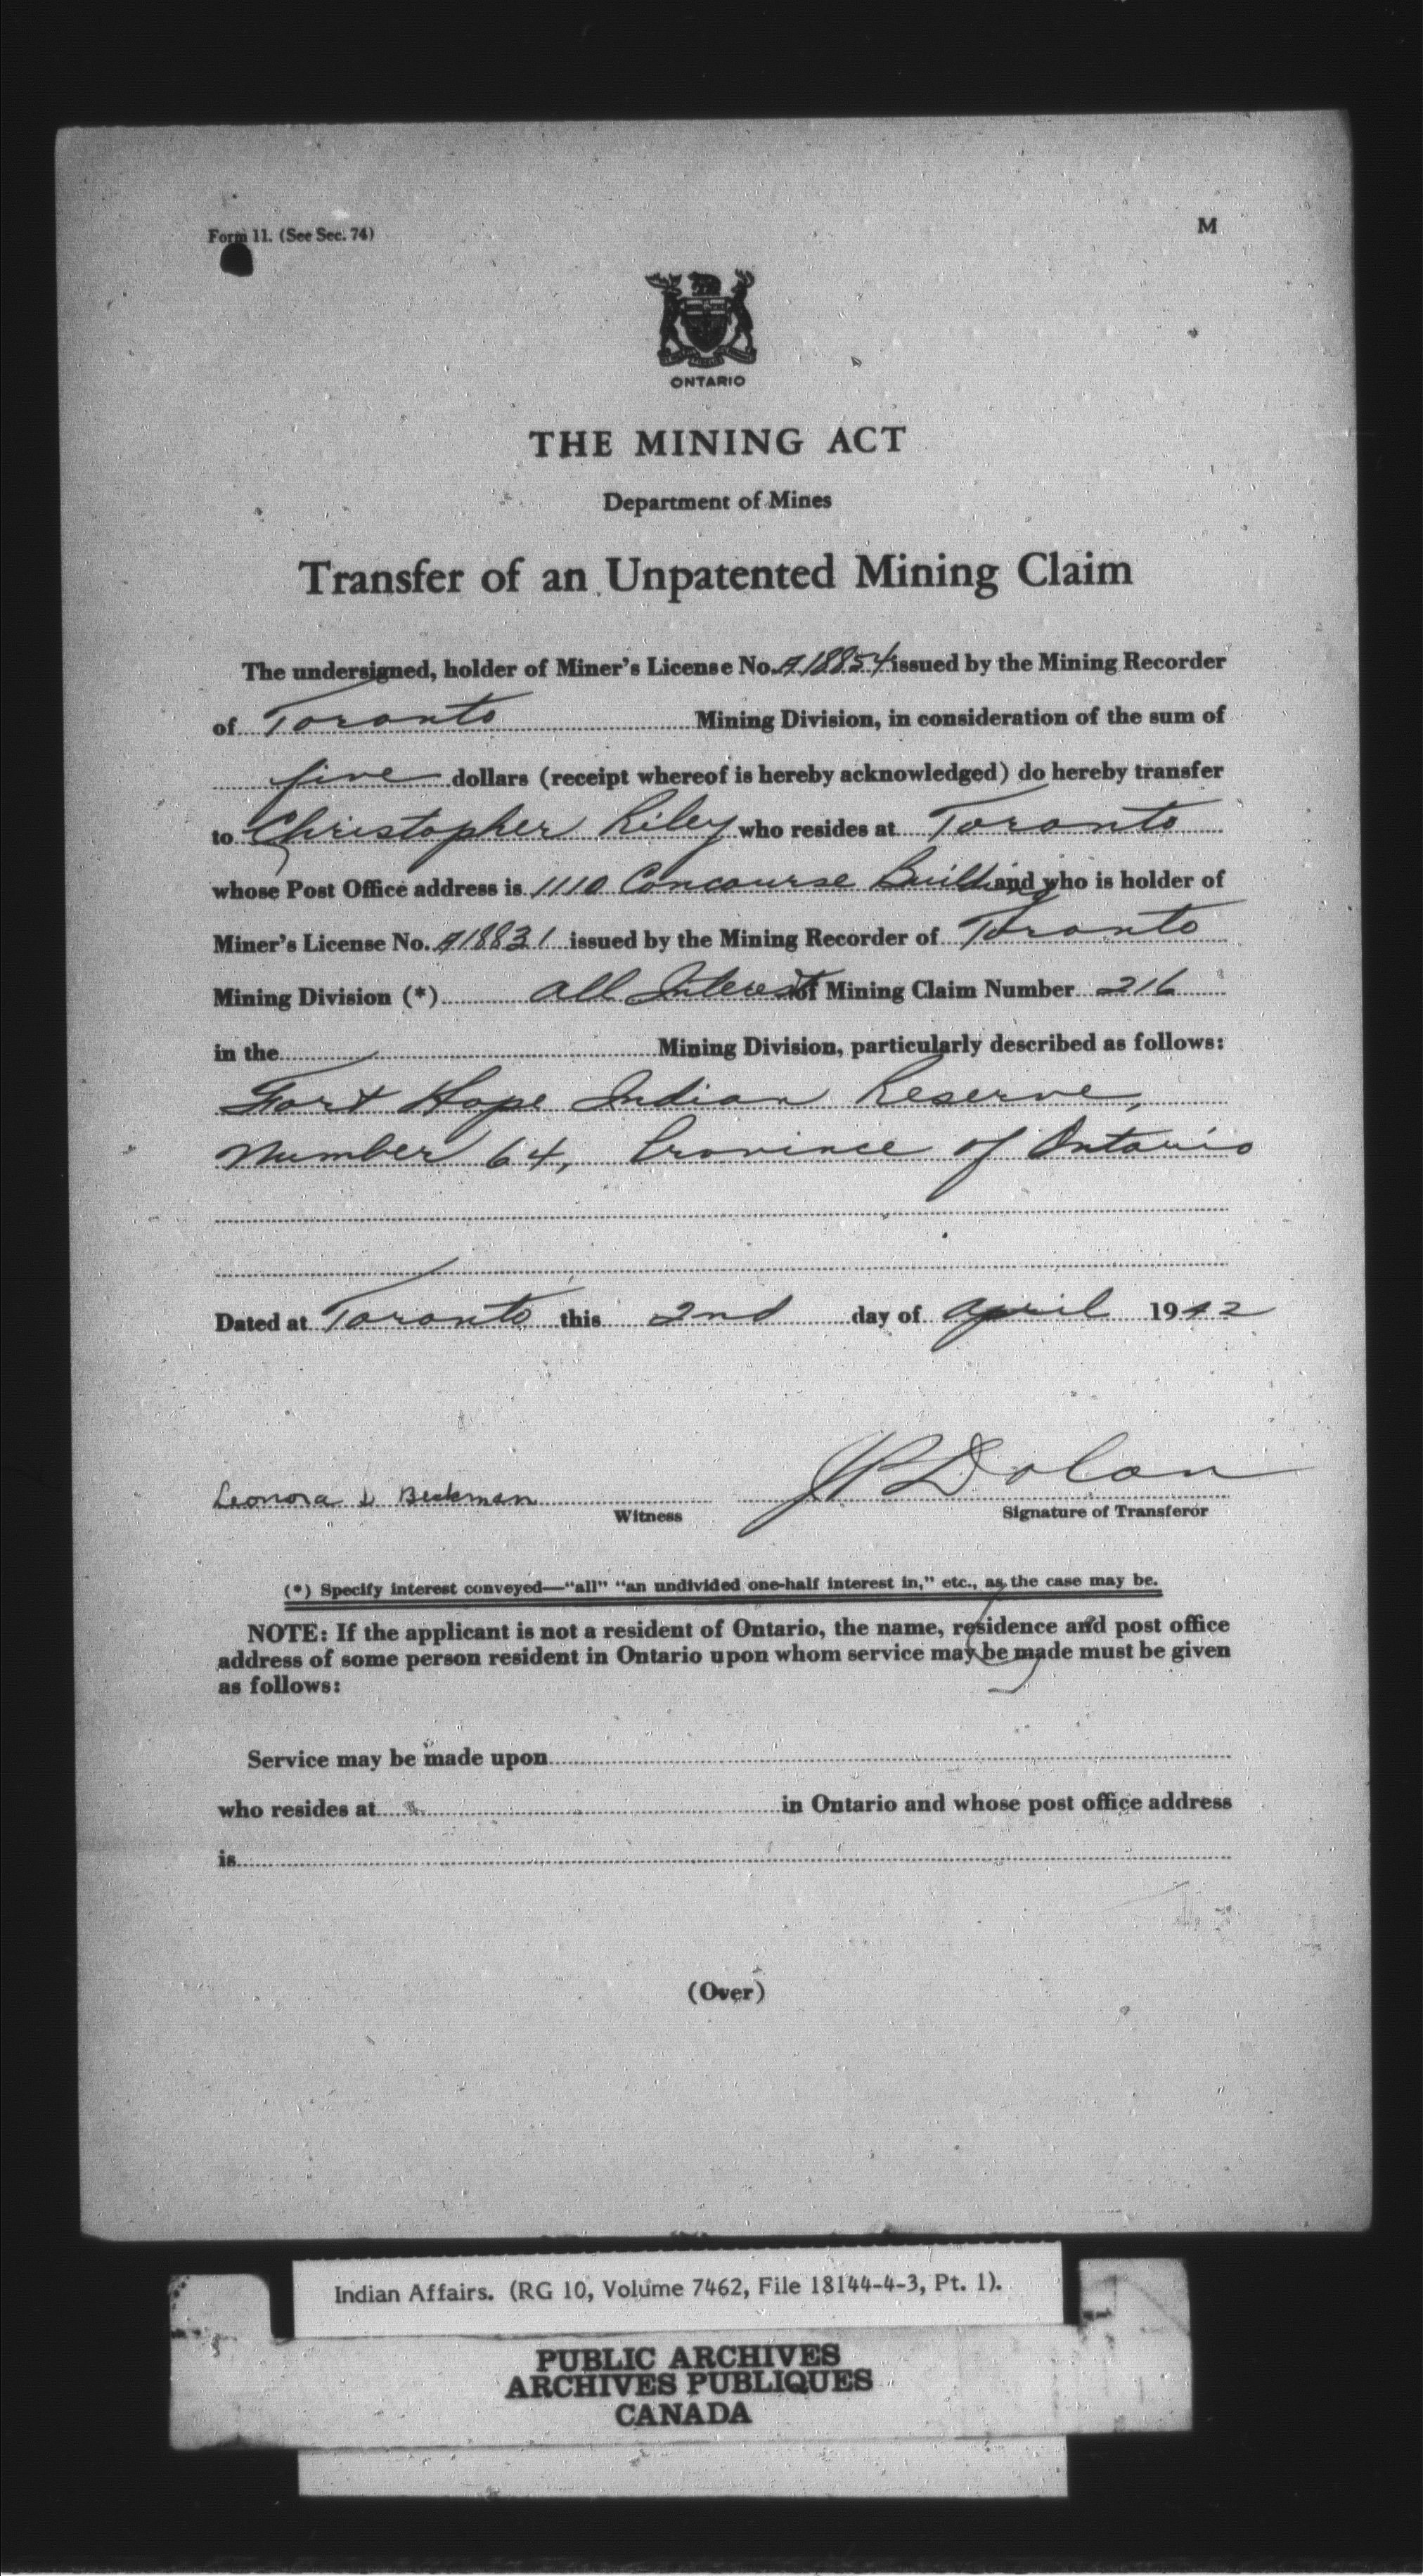 Form 11. (See Sec. 74)
M
ONTARIO
THE MINING ACT
Department of Mines
Transfer of an Unpatented Mining Claim
The undersigned, holder of Miner's License No. A18854 issued by the Mining Recorder
of Toronto Mining Division, in consideration of the sum of
five dollars (receipt whereof is hereby acknowledged) do hereby transfer
to Christopher Riley who resides at Toronto
whose Post Office address is 1110 Concourse Building and who is holder of
Miner's License No. A18831 issued by the Mining Recorder of Toronto
Mining Division (*) all Interest of Mining Claim Number 216
in the Mining Division, particularly described as follows:
Fort Hope Indian Reserve,
Number 64, Province of Ontario
Dated at Toronto this 2nd day of April 1942
Leonora D Beckman
JP Dolan
Witness
Signature of Transferor
(*) Specify interest conveyed—"all" "an undivided one-half interest in," etc., as the case may be.
NOTE: If the applicant is not a resident of Ontario, the name, residence and post office
address of some person resident in Ontario upon whom service may be made must be given
as follows:
Service may be made upon
who resides at in Ontario and whose post office address
is
(Over)
Indian Affairs. (RG 10, Volume 7462, File 18144-4-3, Pt. 1).
PUBLIC ARCHIVES
ARCHIVES PUBLIQUES
CANADA